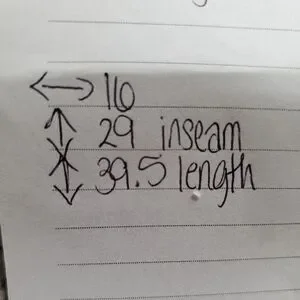 ↔ 16
↕ 29 inseam
↕ 39.5 length